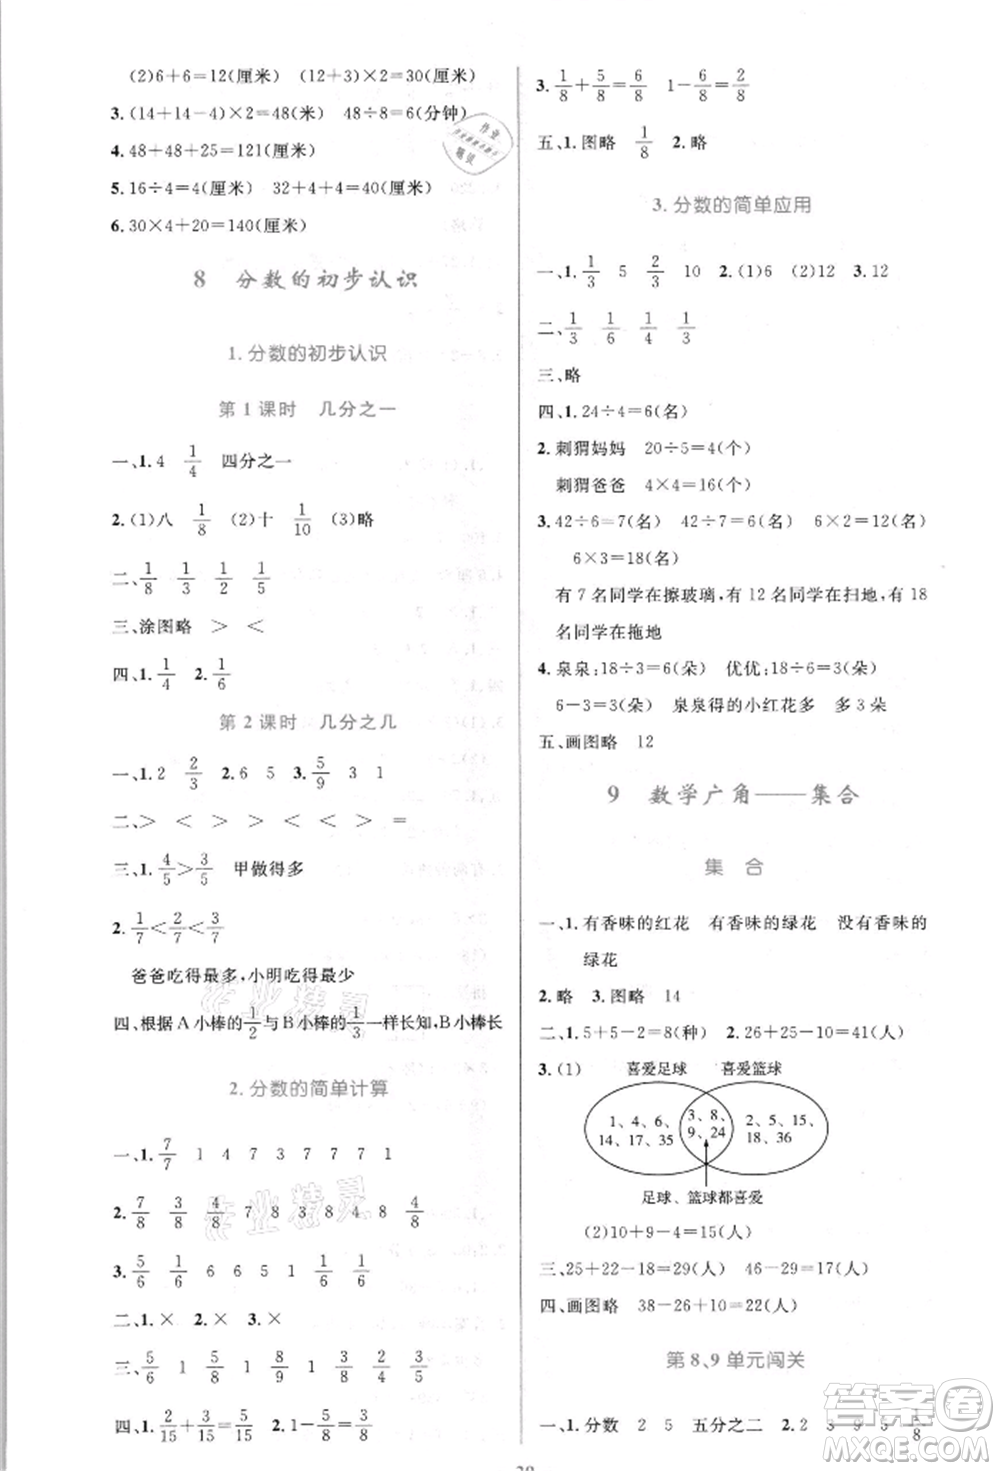 (2)6+6=12(厘米) (12+3)×2=30(厘米)
3.(14+14-4)×2=48(米) 48÷8=6(分钟)
4.48+48+25=121(厘米)
5.16÷4=4(厘米) 32+4+4=40(厘米)
6.30×4+20=140(厘米)
8 分数的初步认识
1.分数的初步认识
第1课时 几分之一
一、1.4 1/4 四分之一
2.(1)八 1/8 (2)十 1/10 (3)略
二、1/8 1/3 1/2 1/5
三、涂图略 > <
四、1.1/4 2.1/6
第2课时 几分之几
一、1.2 2/3 2.6 5 3.5/9 3/4
二、> < > < < > =
三、1.4/5>3/5 甲做得多
2.1/7<2/7<3/7
爸爸吃得最多,小明吃得最少
四、根据A小棒的1/2与B小棒的1/3一样长知,B小棒长
2.分数的简单计算
一、1.7/7 1 4 7 7 7 7 1
2.7/8 3/8 4/8 7 8 3 8 4 8 4/8
3.5/6 1/6 6 6 5 1 1/6 4/6
二、1.× 2.× 3.×
三、5/6 1 1/8 5/9 1 2/4 4/7
四、1.2/15+7/15=9/15 2.1-5/8=3/8
3.1/8+5/8=6/8 1-6/8=2/8
五、1.图略 1/8 2.略
3.分数的简单应用
一、1.1/3 5 2/3 10 2.(1)6 (2)12 3.12
二、1/3 1/6 1/4 1/3
三、略
四、1.24÷4=6(名)
2.刺猬妈妈 20÷5=4(个)
刺猬爸爸 4×4=16(个)
3.42÷6=7(名) 42÷7=6(名) 6×2=12(名)
6×3=18(名)
有7名同学在擦玻璃,有12名同学在扫地,有18
名同学在拖地
4.泉泉:18÷3=6(朵) 优优:18÷6=3(朵)
6-3=3(朵) 泉泉得的小红花多 多3朵
五、画图略 12
9 数学广角——集合
集 合
一、1.有香味的红花 有香味的绿花 没有香味的
绿花
2.略 3.图略 14
二、1.5+5-2=8(种) 2.26+25-10=41(人)
3.(1) 喜爱足球 喜爱篮球
1、4、6、 3、8、 2、5、15、
14、17、35 9、24 18、36
足球、篮球都喜爱
(2)10+9-4=15(人)
三、25+22-18=29(人) 46-29=17(人)
四、画图略 38-26+10=22(人)
第8、9单元闯关
一、1.分数 2 5 五分之二 2.2 3 9 5 1/8
答案圈
MXQE.COM